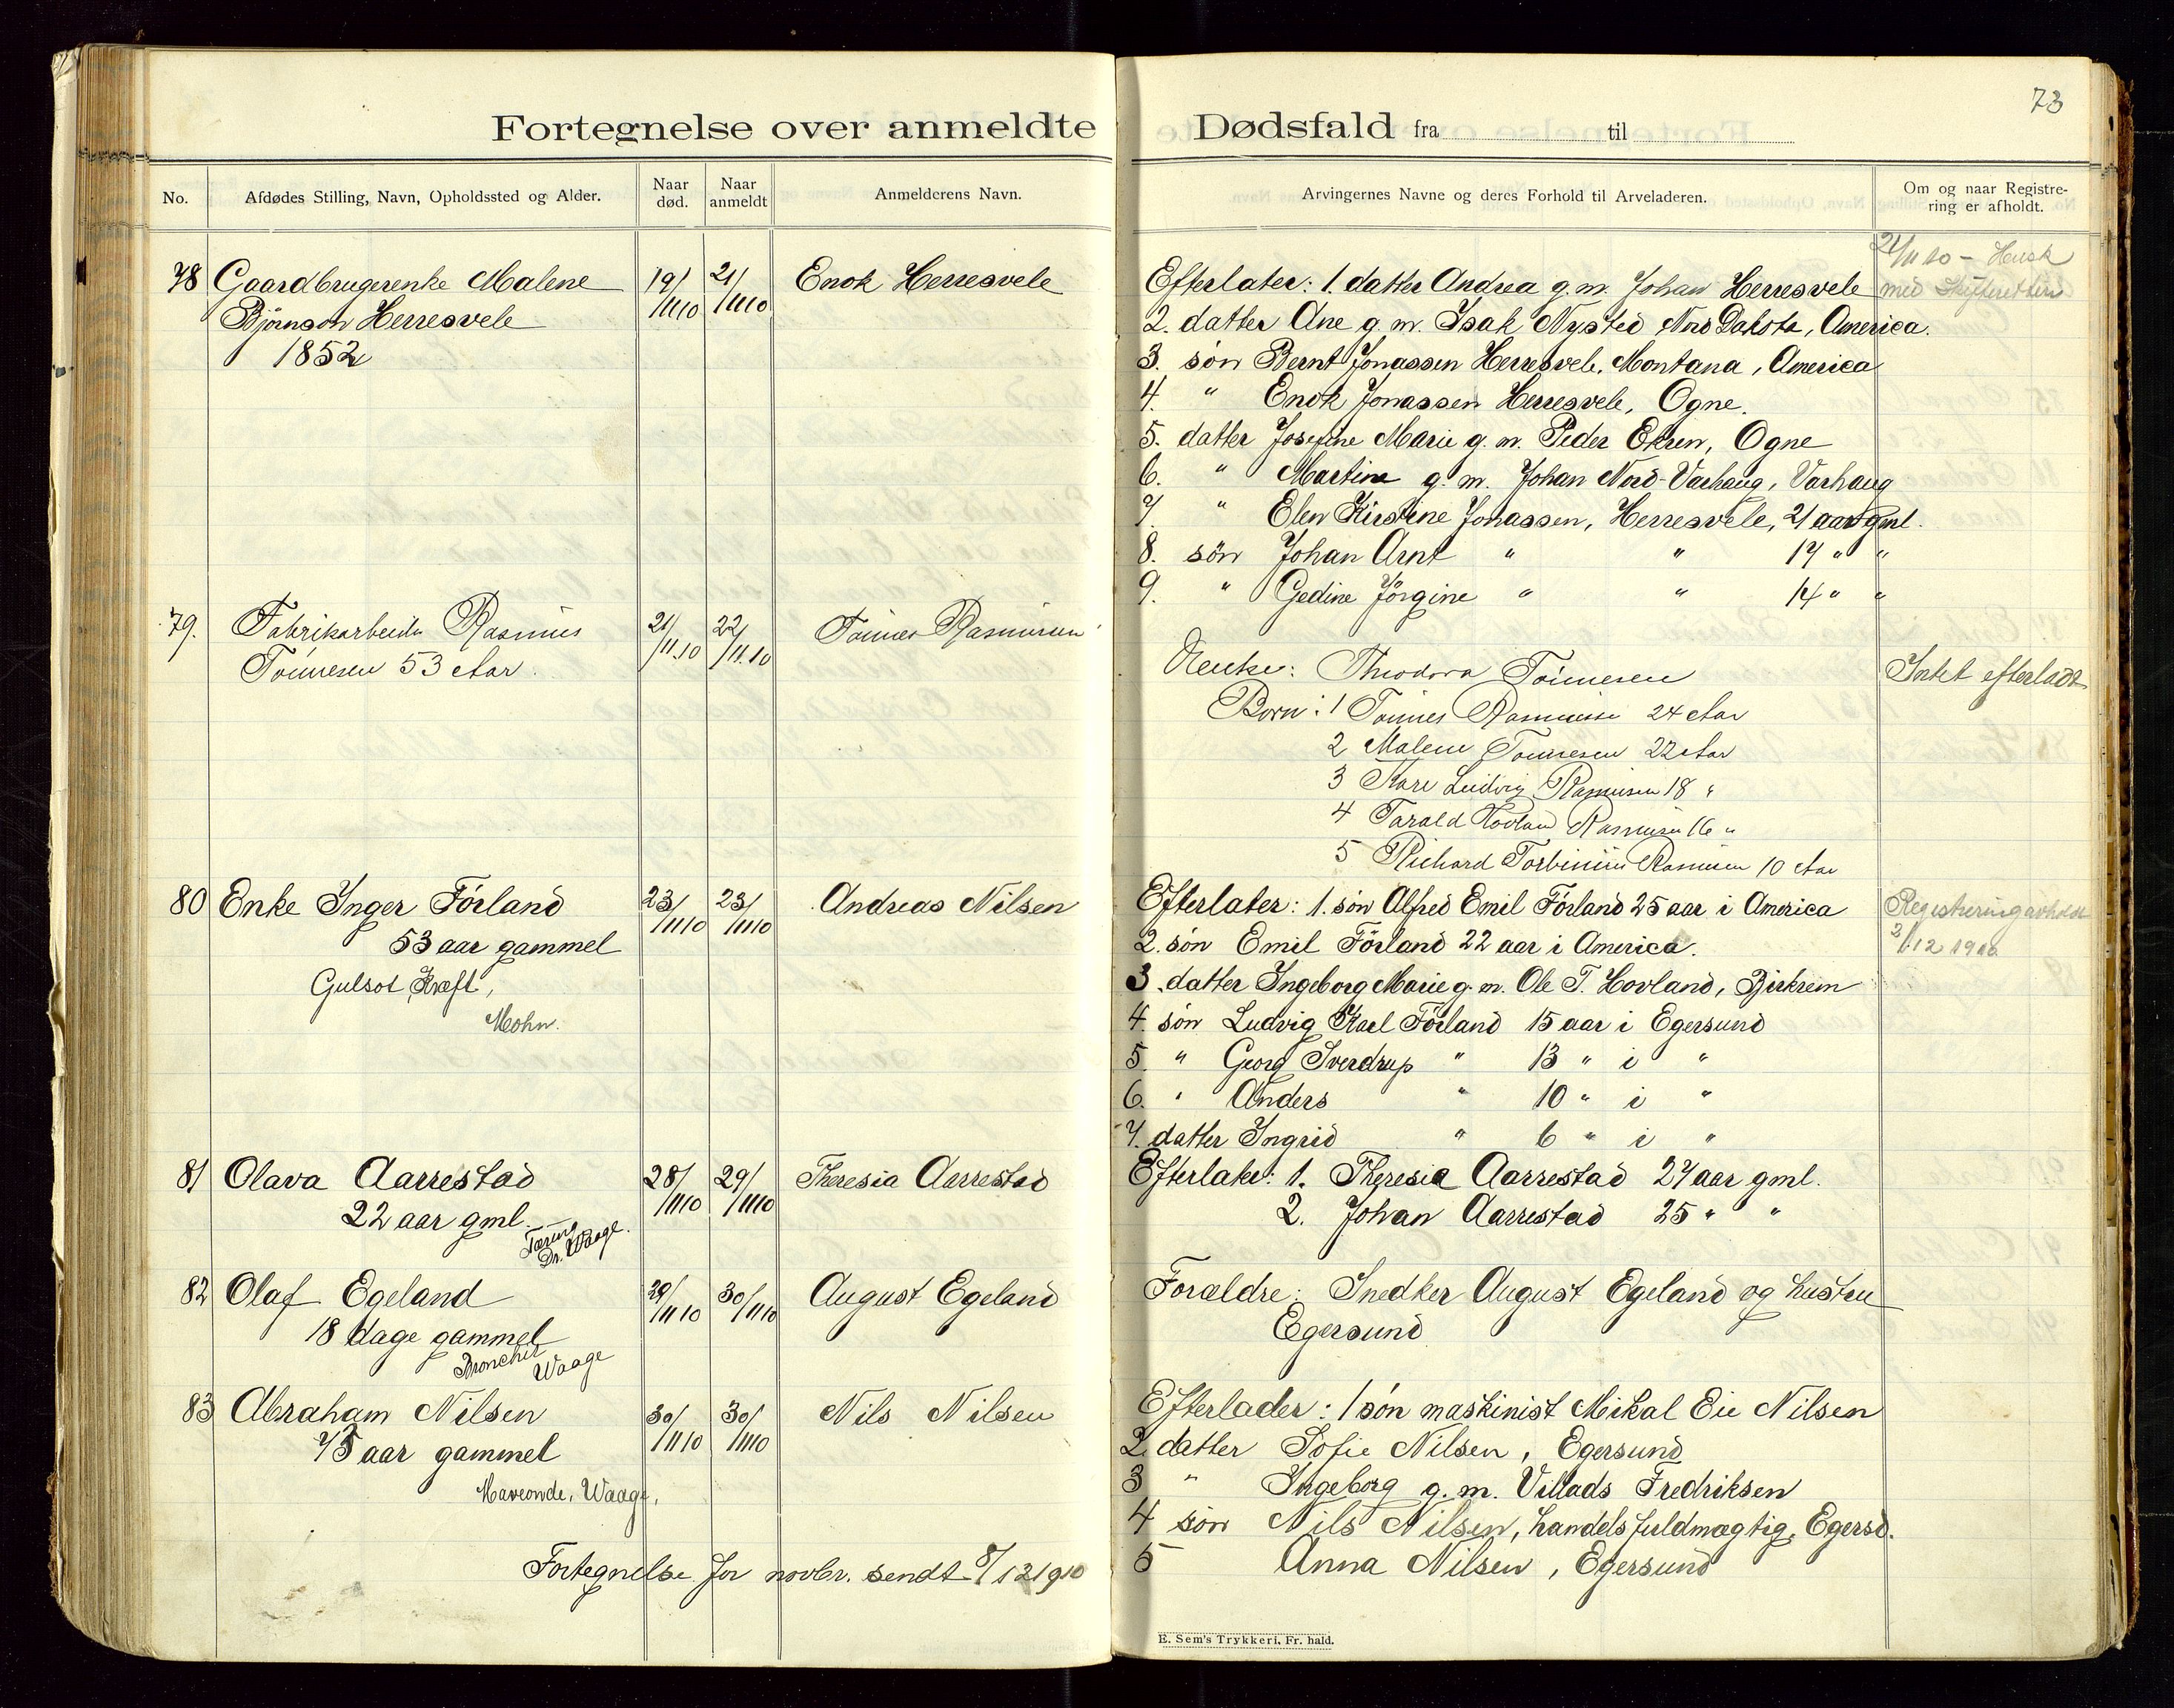 73
Fortegnelse over anmeldte Dødsfald fra til
No. Afdødes Stilling, Navn, Opholdssted og Alder. Naar død. Naar anmeldt Anmelderens Navn. Arvingernes Navne og deres Forhold til Arveladeren. Om og naar Registrering er afholdt.
78 Gaardbrugerenke Malene 19/11 10 21/11 10 Enok Herresvele
Bjørnson Herresvele
1852
21/11 10 - Husk
Efterlater: 1. datter Andrea g. m. Johan Herresvele med Skifteretten
2. datter Ane g. m. Isak Nysted Nord Dakota, America.
3. søn Bernt Jonassen Herresvele, Montana, America
4. " Enok Jonassen Herresvele, Ogne.
5. datter Josefine Marie g. m. Peder Ekren, Ogne
6. " Martine g. m. Johan Nord-Varhaug, Varhaug
7. " Elen Kirstine Jonassen, Herresvele, 21 aar gml.
8. søn Johan Arnt " " 17 " "
9. " Gedine Jörgine " " 14 " "
79. Fabrikarbeider Rasmus 21/11.10 22/11.10 Tønnes Rasmussen
Tønnesen 53 Aar.
Encke: Theodora Tønnesen Intet efterladt
Børn: 1 Tønnes Rasmussen 24 Aar
2 Malene Tønnesen 22 Aar
3 Kare Ludvig Rasmussen 18 "
4 Tarald Hovland Rasmussen 16 "
5 Richard Torbinius Rasmussen 10 Aar
80 Enke Inger Förland 23/11 10 23/11 10 Andreas Nilsen
53 aar gammel
Gulsot, Kræft,
Mohn.
Efterlater: 1. søn Alfred Emil Förland 25 aar i America Registrering avholdt
2. søn Emil Förland 22 aar i America. 3/12 1910
3. datter Ingeborg Marie g. m. Ole T. Hovland, Bjerkrem
4. søn Ludvig Karl Förland 15 aar i Egersund
5. " Georg Sverdrup " 13 " i "
6. " Anders " 10 " i "
7. datter Ingrid " 6 " i "
81 Olava Aarrestad 28/11 10 29/11 10 Theresia Aarrestad
22 aar gml.
Tæring
Dr. Waage.
Efterlater: 1. Theresia Aarrestad 27 aar gml.
2. Johan Aarrestad 25 " "
82 Olaf Egeland 29/11 10 30/11 10 August Egeland
18 dage gammel
Bronchit
Waage
Forældre: Snedker August Egeland og hustru
Egersund
83 Abraham Nilsen 30/11 10 30/11 10 Nils Nilsen
75 aar gammel
Maveonde, Waage,
Efterlader: 1 søn maskinist Mikal Eie Nilsen
2. datter Sofie Nilsen, Egersund
3 " Ingeborg g. m. Villads Fredriksen
4 søn Nils Nilsen, handelsfuldmægtig, Egersd.
5 Anna Nilsen, Egersund
Fortegnelse for novbr. sendt 8/12 1910
E. Sem's Trykkeri, Fr. hald.